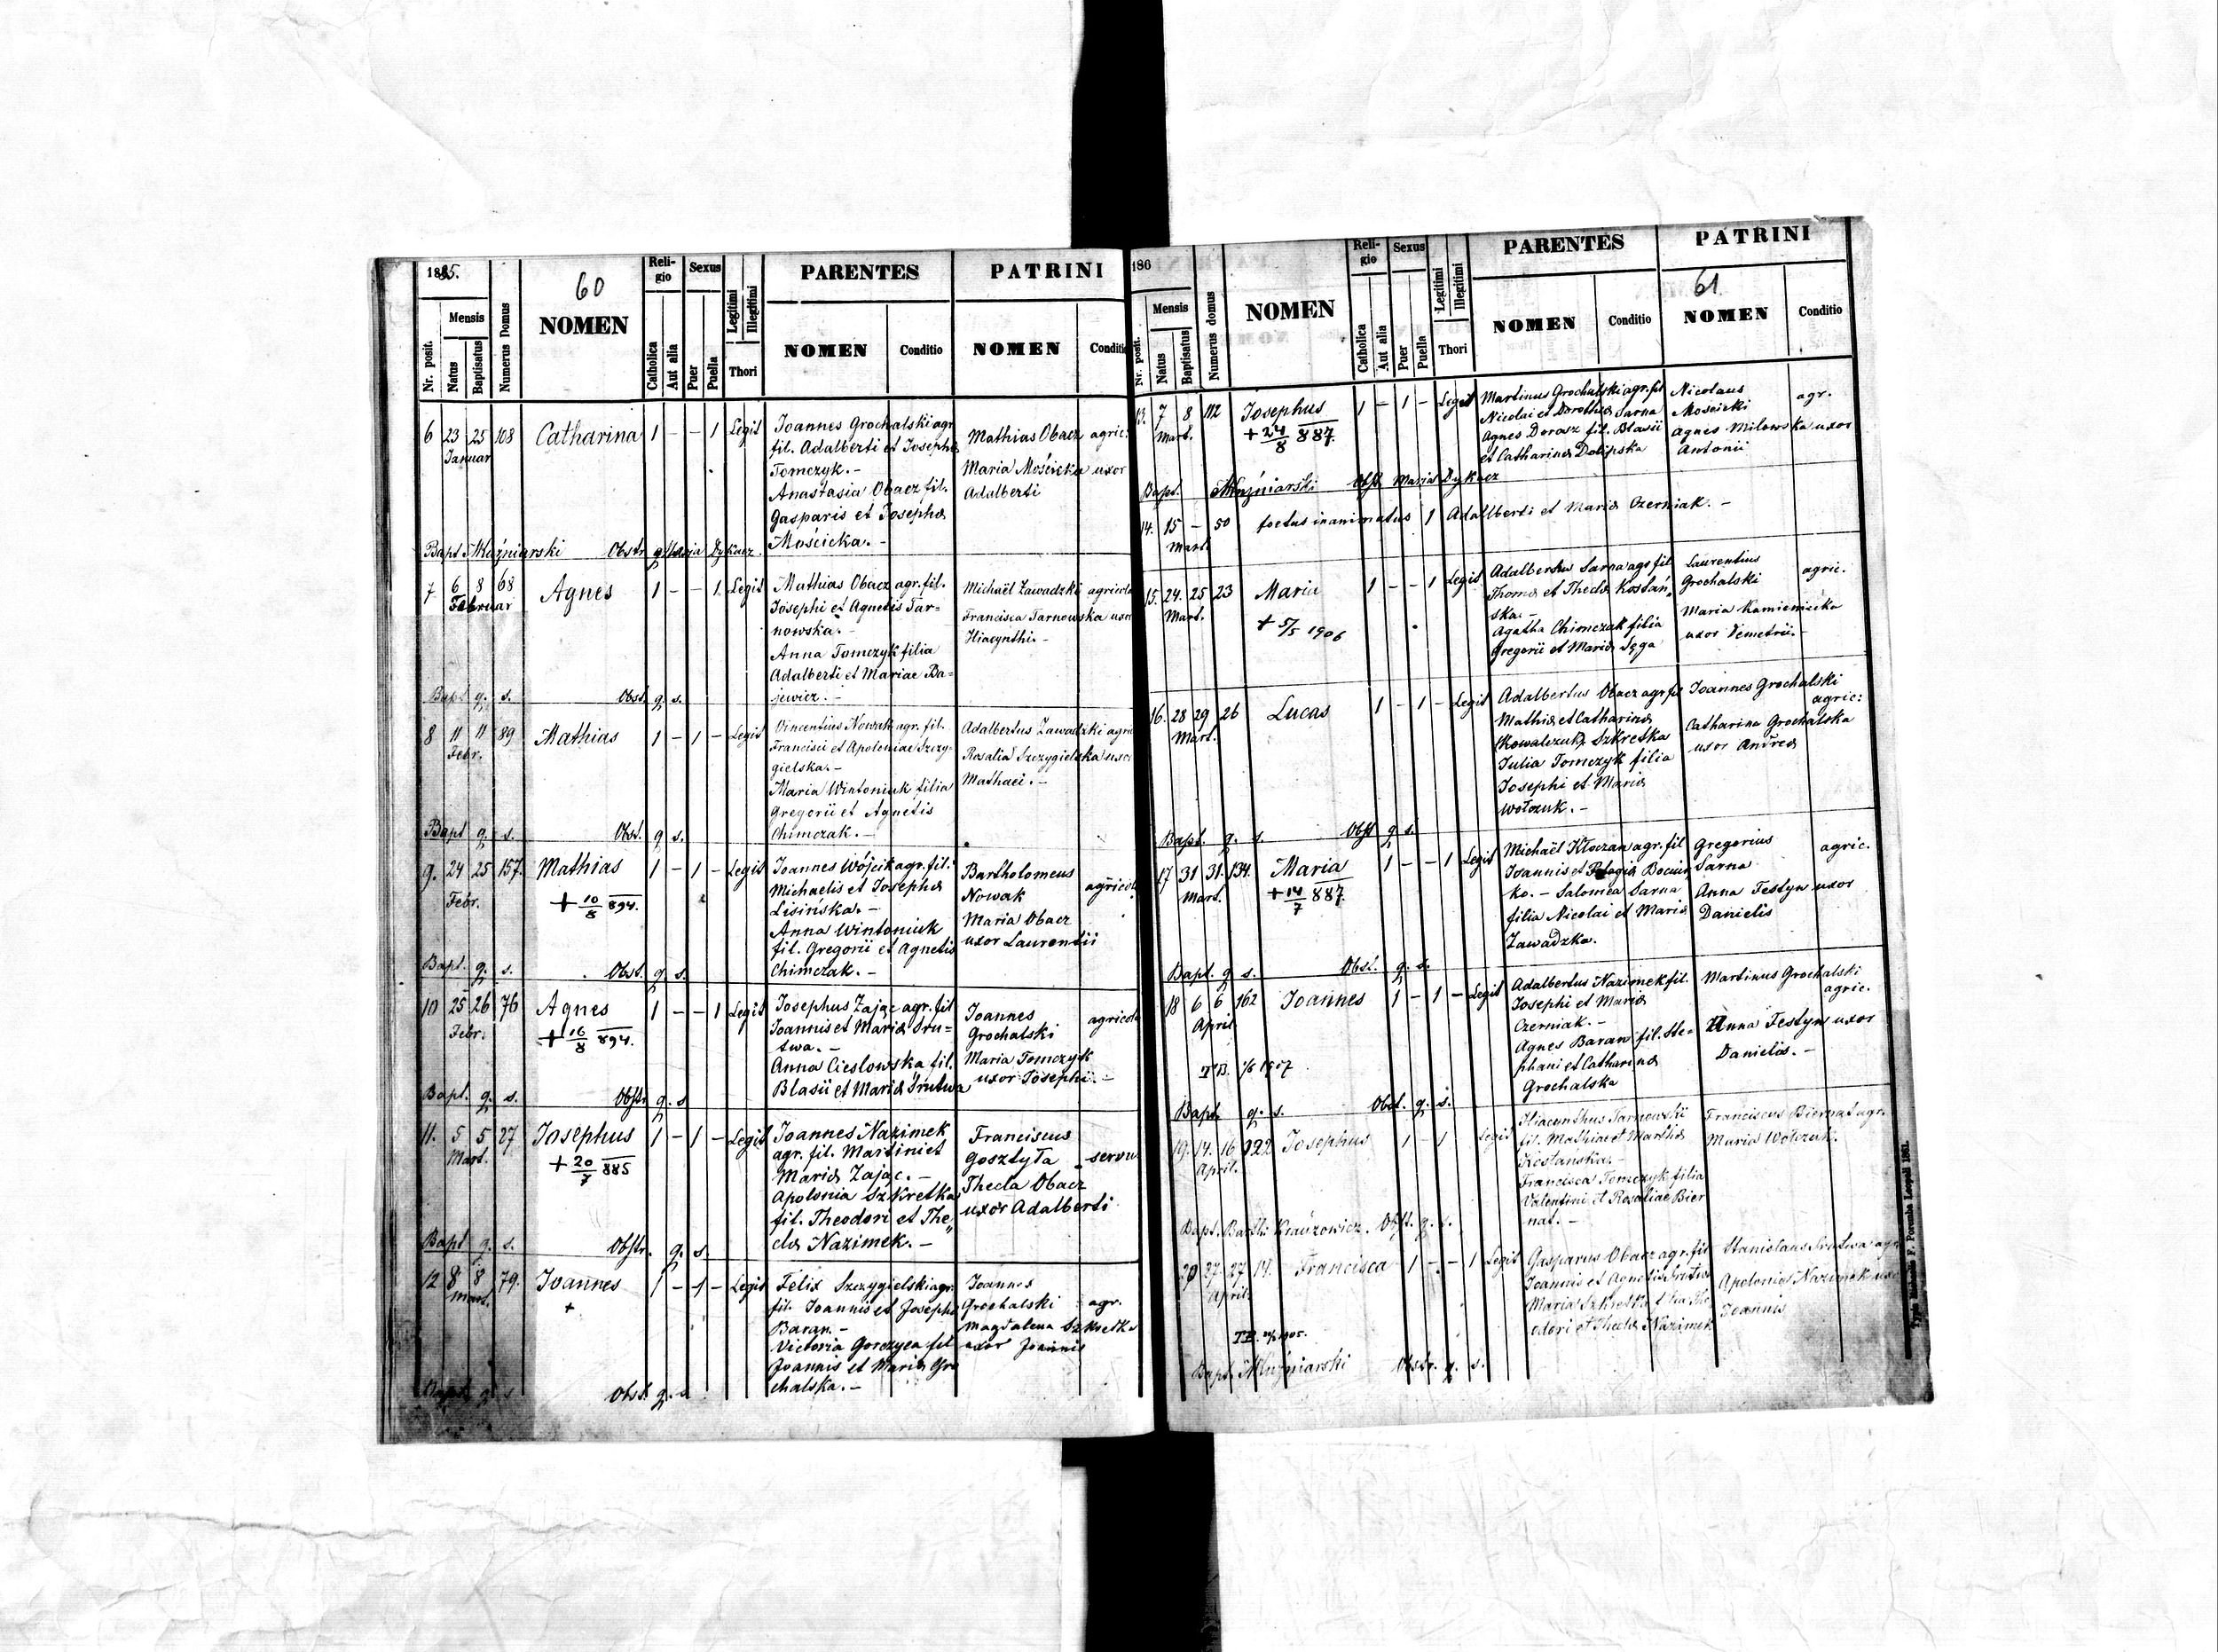 1885.
60
Nr. posit.
Mensis
Natus
Baptisatus
Numerus Domus
NOMEN
Religio
Catholica
Aut alia
Sexus
Puer
Puella
Legitimi
Illegitimi
Thori
PARENTES
NOMEN
Conditio
PATRINI
NOMEN
Conditio
6 23 25 108 Catharina 1 - - 1 Legit
Januar
Joannes Grochalski agr
fil. Adalberti et Josepha
Tomczyk. -
Anastasia Obacz fil.
Gasparis et Josepha
Mościcka. -
Mathias Obacz agric.
Maria Mościcka uxor
Adalberti
Bapt. Muźniarski Obstr. Maria Dykacz
7 6 8 68 Agnes 1 - - 1 Legit
Februar
Mathias Obacz agr. fil.
Josephi et Agnetis Tar=
nowska. -
Anna Tomczyk filia
Adalberti et Mariae Ba=
jewicz. -
Michaël Zawadzki agricola
Francisca Tarnowska uxor
Hiacynthi -
Bapt. q. s. Obst. q. s.
8 11 11 89 Mathias 1 - 1 - Legit
Febr.
Vincentius Nowak agr. fil.
Francisci et Apoloniae Szczy-
gielska. -
Maria Wintoniuk filia
Gregorii et Agnetis
Chimczak. -
Adalbertus Zawadzki agric
Rosalia Szczygielska uxor
Mathaei. -
Bapt q. s. Obst. q. s.
9. 24 25 157. Mathias 1 - 1 - Legit
Febr.
+ 10/8 894.
Joannes Wójcik agr. fil.
Michaelis et Josepha
Lisińska. -
Anna Wintoniuk
fil. Gregorii et Agnetis
Chimczak. -
Bartholomeus
Nowak agricola
Maria Obacz
uxor Laurentii
Bapt. q. s. Obst. q. s.
10 25 26 76 Agnes 1 - - 1 Legit
Febr.
+ 16/8 894.
Josephus Zając agr. fil
Joannis et Maria Sru=
twa. -
Anna Cieslowska fil.
Blasii et Maria Śrutwa
Joannes
Grochalski agricola
Maria Tomczyk
uxor Josephi. -
Bapt. q. s. Obstr. q. s
11. 5 5 27 Josephus 1 - 1 - Legit
Mart.
+ 20/7 885
Joannes Nazimek
agr. fil. Martini et
Maria Zając. -
Apolonia Szkretka
fil. Theodori et The"
cla Nazimek. -
Franciscus
Gosztyła servu
Thecla Obacz
uxor Adalberti
Bapt q. s. Obstr. q. s
12 8 8 79. Joannes 1 - 1 - Legit
Mart.
+
Felix Szczygielski agr.
fil. Joannis et Josepha
Baran. -
Victoria Gorczyca fil
Joannis et Maria Gro
chalska. -
Joannes
Grochalski agr.
Magdalena Szkretka
uxor Joannis
Bapt. q. s Obst. q. s
186
61
Nr. posit.
Mensis
Natus
Baptisatus
Numerus domus
NOMEN
Religio
Catholica
Aut alia
Sexus
Puer
Puella
Legitimi
Illegitimi
Thori
PARENTES
NOMEN
Conditio
PATRINI
NOMEN
Conditio
13. 7 8 112 Josephus 1 - 1 - Legit
Mart.
+ 24/8 887.
Martinus Grochalski agr. fil
Nicolai et Dorothea Sarna
Agnes Dorosz fil. Blasii
et Catharina Dolipska
Nicolaus agr.
Mościcki
Agnes Milowska uxor
Antonii
Bapt. Muźniarski Obst. Maria Dykacz
14. 15 - 50 foetus inanimatus 1 Adalberti et Maria Czerniak. -
Mart.
15. 24. 25 23 Maria 1 - - 1 Legit
Mart.
+ 5/5 1906
Adalbertus Sarna agr fil
Thoma et Thecla Kostań"
ska. -
Agatha Chimczak filia
Gregorii et Maria Sęga
Laurentius
Grochalski agric.
Maria Kamieniecka
uxor Demetrii. -
16. 28 29 26 Lucas 1 - 1 - Legit
Mart.
Adalbertus Obacz agr fil
Mathia et Catharina
(Kowalczuk) Szkretka
Julia Tomczyk filia
Josephi et Maria
Wołczuk. -
Joannes Grochalski
agric:
Catharina Grochalska
uxor Andrea
Bapt. q. s. Obst q. s.
17 31 31. 134. Maria 1 - - 1 Legit
Mart.
+ 14/7 887.
Michaël Kłoczan agr. fil
Joannis et Pelagia Bociur
ko. - Salomea Sarna
filia Nicolai et Maria
Zawadzka.
Gregorius agric.
Sarna
Anna Testyn uxor
Danielis
Bapt. q s. Obst. q. s.
18 6 6 162 Joannes 1 - 1 - Legit
April
Adalbertus Nazimek fil.
Josephi et Maria
Czerniak. -
Agnes Baran fil. Ste=
phani et Catharina
Grochalska
Martinus Grochalski
agric.
Anna Testyn uxor
Danielis. -
Bapt. q. s. Obst. q. s.
19. 14. 16 122 Josephus 1 - 1 Legit
April.
Hiacynthus Tarnowski
fil. Mathia et Martha
Kostańska. -
Francisca Tomczyk filia
Valentini et Rosaliae Bier
nat. -
Franciscus Biernat agr.
Maria Wołczuk.
Bapt. Barth. Krauzowicz. Obst. q. s.
20 27 27 14. Francisca 1 - - 1 Legit
April.
Gasparus Obacz agr. fil
Joannis et Agnetis Srutwa
Maria Szkretka filia The
odori et Thecla Nazimek
Stanislaus Srutwa agr
Apolonia Nazimek uxor
Joannis
Bapt. Muźniarski Obstr. q. s.